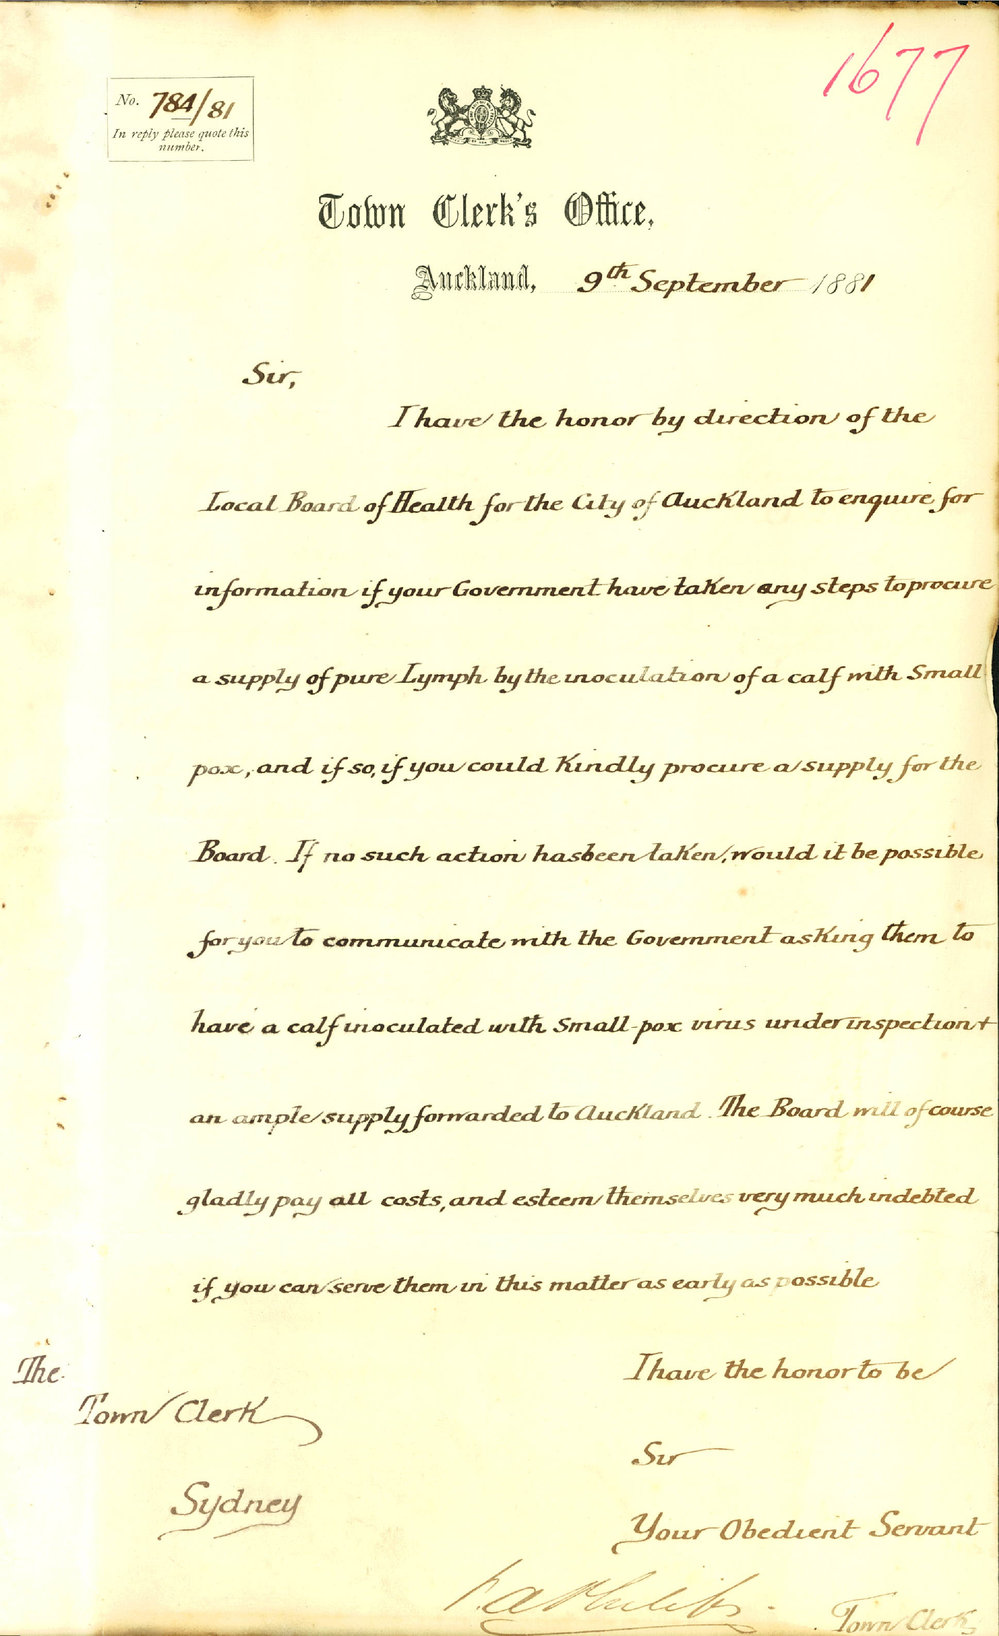 1677
No. 784/81
In reply please quote this
number.
Town Clerk's Office,
Auckland, 9th September 1881
Sir,
I have the honor by direction of the
Local Board of Health for the City of Auckland to enquire for
information if your Government have taken any steps to procure
a supply of pure Lymph by the inoculation of a calf with Small
pox, and if so, if you could Kindly procure a supply for the
Board. If no such action has been taken, would it be possible
for you to communicate with the Government asking them to
have a calf inoculated with Small-pox virus under inspection +
an ample supply forwarded to Auckland. The Board will of course
gladly pay all costs, and esteem themselves very much indebted
if you can serve them in this matter as early as possible
I have the honor to be
Sir
Your Obedient Servant
Town Clerk
The
Town Clerk
Sydney